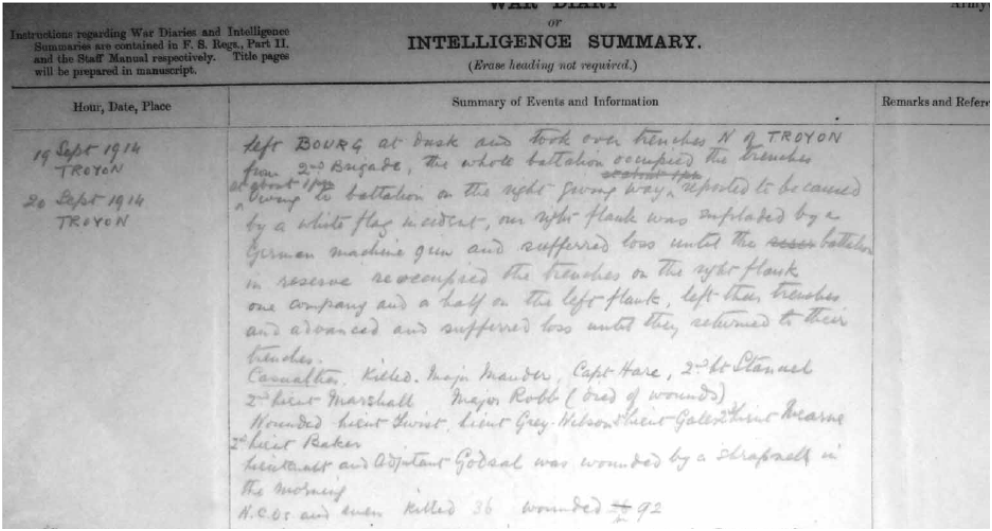 WAR DIARY
Army
or
INTELLIGENCE SUMMARY.
(Erase heading not required.)
Instructions regarding War Diaries and Intelligence
Summaries are contained in F. S. Regs., Part II.
and the Staff Manual respectively. Title pages
will be prepared in manuscript.
Hour, Date, Place
Summary of Events and Information
Remarks and Refere
19 Sept 1914
TROYON
left BOURG at dusk and took over trenches N of TROYON
from 2nd Brigade, the whole battalion occupied the trenches
at about 1pm
20 Sept 1914
TROYON
Owing to battalion on the right giving way, reported to be caused
by a white flag incident, our right flank was enfiladed by a
German machine gun and sufferred loss until the battalion
in reserve reoccupied the trenches on the right flank
one company and a half on the left flank, left their trenches
and advanced and sufferred loss until they returned to their
trenches.
Casualties. Killed. Major Mander, Capt Hare, 2nd Lt Stannel
2nd Lieut Marshall Major Robb (died of wounds)
Wounded Lieut Twist, Lieut Grey-Wilson Lieut Gales 2nd Lieut Hearne
2nd Lieut Baker
Lieutenant and Adjutant Godsal was wounded by a shrapnell in
the morning
N.C.Os and men killed 36 wounded 92